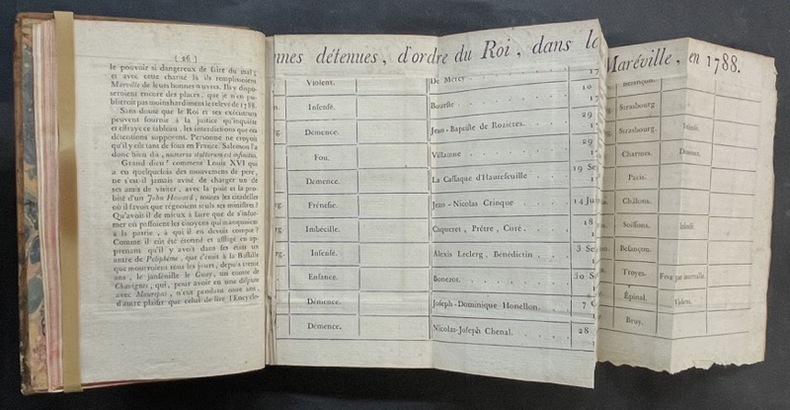 ( 26 )
le pouvoir si dangereux de faire du mal;
et avec cette charité là ils remplissoient
Maréville de leurs bonnes œuvres. Il y dispo-
seroient encore des places, que je n'en pu-
blierois pas moins hardiment le relevé de 1788.
Sans doute que le Roi et ses exécuteurs
peuvent fournir à la justice qu'inquiète
et effraye ce tableau, les interdictions que ces
détentions supposent. Personne ne croyoit
qu'il y eût tant de fous en France. Salomon l'a
donc bien dit, numerus stultorum est infinitus.
Grand dieu! comment Louis XVI qui
a eu quelquefois des mouvemens de père,
ne s'est-il jamais avisé de charger un de
ses amis de visiter, avec la pitié et la pro-
bité d'un John Howard, toutes les citadelles
où il savoit que régnoient seuls ses ministres?
Qu'avoit-il de mieux à faire que de s'infor-
mer où passoient les citoyens qui manquoient
à la patrie, à qui il en devoit compte?
Comme il eût été étonné et affligé en ap-
prenant qu'il y avoit dans ses états un
antre de Polyphême, que c'étoit à la Bastille
que mouroient tous les jours, depuis trente
ans, le janséniste le Guay, un comte de
Chavignes, qui, pour avoir eu une dispute
avec Maurepas, n'eut pendant onze ans,
d'autre plaisir que celui de lire l'Encyclo-
nnes détenues, d'ordre du Roi, dans
Maréville, en 1788.
Violent. De Mercy 17
Insensé. Bourste. 10
Démence. Jean-Baptiste de Rozieres. 29
Fou. Villaume 29
Démence. La Cassaque d'Hautefeuille 19 Se
Frénésie. Jean-Nicolas Crinque 14 Ju
Imbécille. Caqueret, Prêtre, Curé. 18
Insensé. Alexis Leclerg, Bénédictin 3 Se
Enfance. Bonezot. 30 S
Démence. Joseph-Dominique Honellon. 7
Démence. Nicolas-Joseph Chenal. 28
Besançon.
Strasbourg
Strasbourg. Insensé.
Charmes. Dément.
Paris.
Châlons.
Soissons. Insensé
Besançon.
Troyes.
Épinal. Violent.
Bruy.